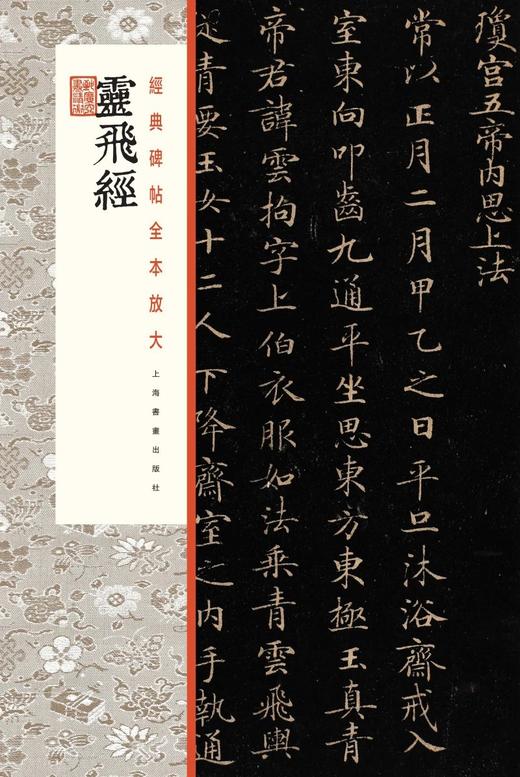 經典碑帖全本放大
靈飛經
上海書畫出版社
瓊宫五帝内思上法
常以正月二月甲乙之日平旦沐浴齋戒入
室東向叩齒九通平坐思東方東極玉真青
帝君諱雲拘字上伯衣服如法乘青雲飛輿
從青要玉女十二人下降齋室之内手執通